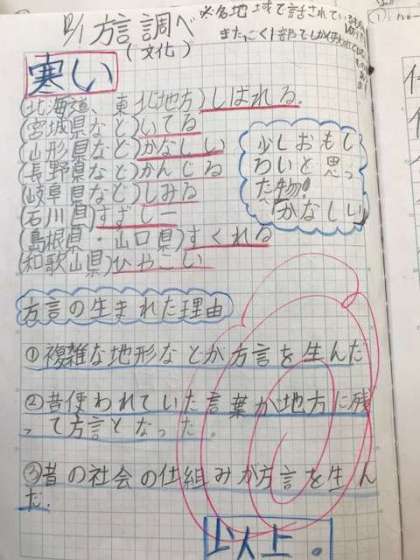 12/1 方言調べ
(文化)
※各地域で話されてい
また、ごく1部でしか
寒い
(北海道、東北地方)しばれる
(宮城県など)いてる
(山形県など)かなしい
(長野県など)かんじる
(岐阜県など)しみる
(石川県)すずしー
(島根県・山口県)すくれる
(和歌山県)ひやこい
少しおもし
ろいと思っ
た物!
「かなしい」
方言の生まれた理由
①複雑な地形などが方言を生んだ
②昔使われていた言葉が地方に残
って方言となった。
③昔の社会の仕組みが方言を生ん
だ.
以上。